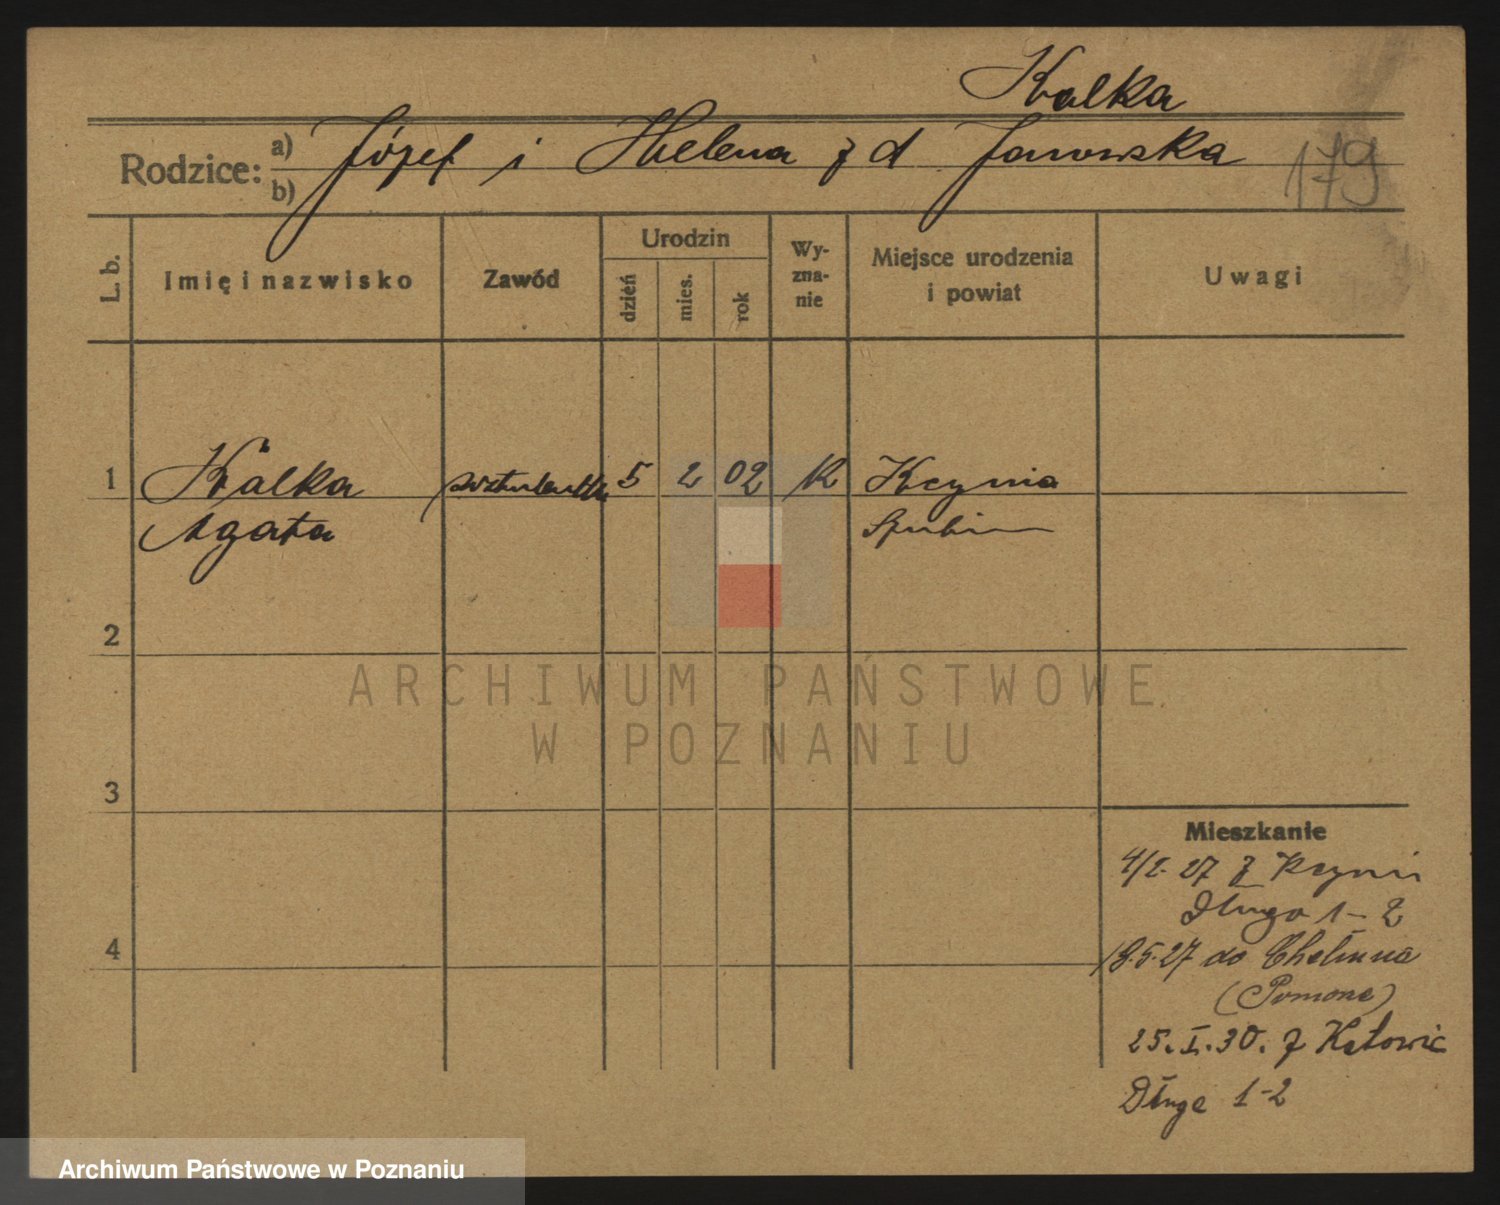 Kalka
Rodzice: a) b) Józef i Helena z d Janowska
179
L. b. Imię i nazwisko Zawód Urodzin dzień mies. rok Wyznanie Miejsce urodzenia i powiat Uwagi
1 Kalka 5 2 02 K Kcynia
Agata Szubin
2
ARCHIWUM PAŃSTWOWE
W POZNANIU
3
Mieszkanie
4/2. 27 z Kcyni
Długa 1-2
4
18.5.27 do Chełmna
(Pomorze)
25.I.30. z Katowic
Długa 1-2
Archiwum Państwowe w Poznaniu